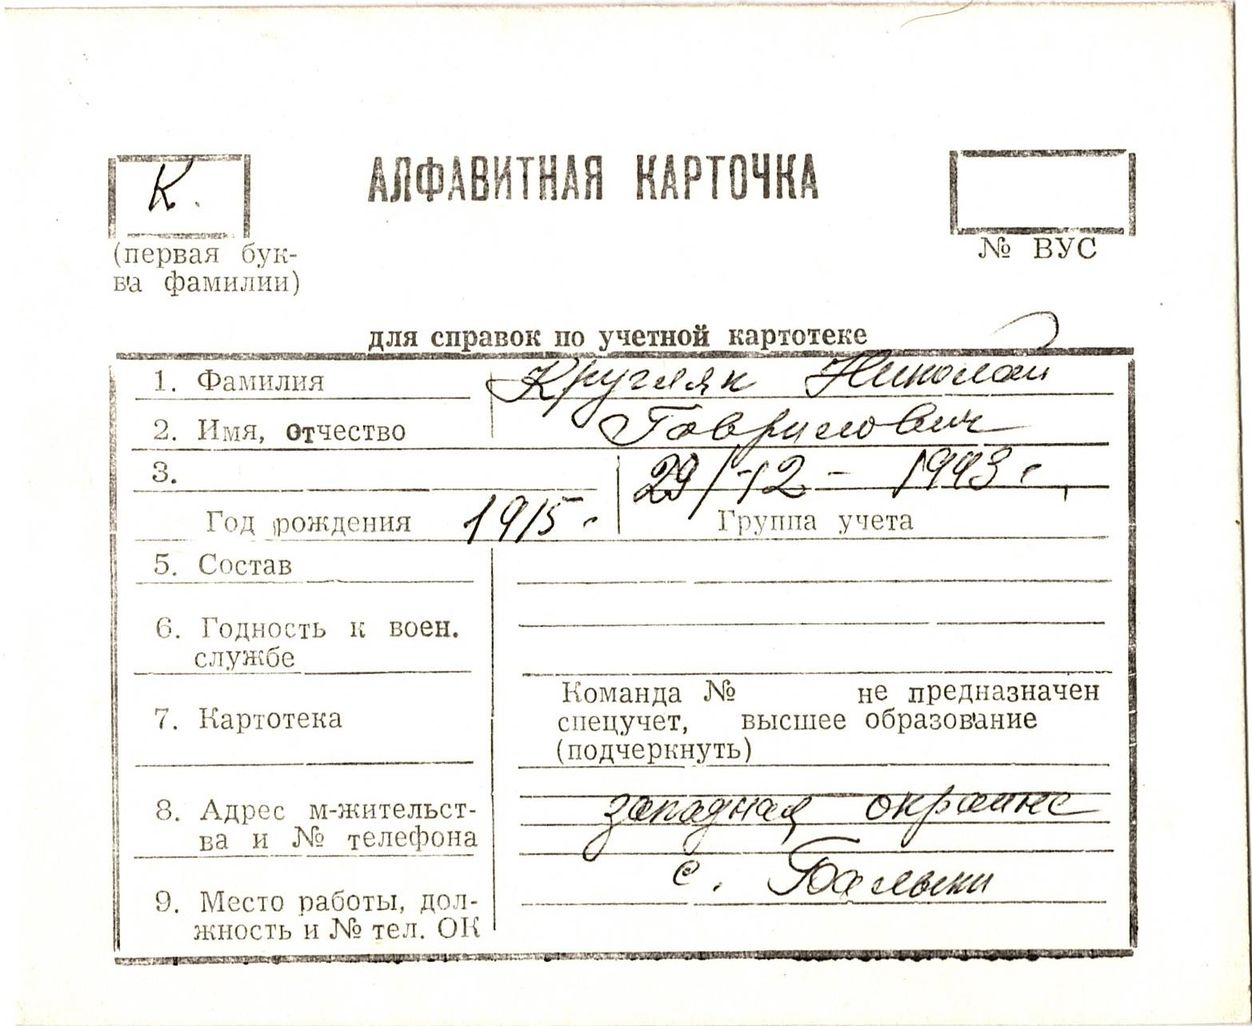 К.
АЛФАВИТНАЯ КАРТОЧКА
(первая бук-
ва фамилии)
№ ВУС
для справок по учетной картотеке
1. Фамилия Кругляк Николай
2. Имя, отчество Гаврилович
3. 29/-12 - 1943 г.
Год рождения 1915. Группа учета
5. Состав
6. Годность к воен.
службе
7. Картотека
Команда № не предназначен
спецучет, высшее образование
(подчеркнуть)
8. Адрес м-жительст-
ва и № телефона
западная окраине
с. Балыки
9. Место работы, дол-
жность и № тел. ОК